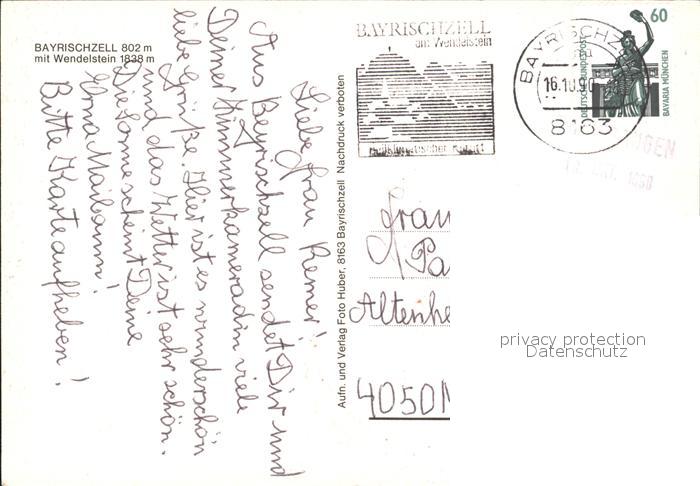 BAYRISCHZELL 802 m
mit Wendelstein 1838 m
Liebe Frau Remer!
Aus Bayrischzell sendet Dir und
Deiner Zimmerkameradin viele
liebe Grüße. Hier ist es wunderschön
und das Wetter ist sehr schön.
Die Sonne scheint Deine
Erna Maibaum!
Bitte Karte aufheben!
Aufn. und Verlag Foto Huber, 8163 Bayrischzell Nachdruck verboten
BAYRISCHZELL
am Wendelstein
heilklimatischer Kurort
BAYRISCHZ
16.10.90
8163
60
DEUTSCHE BUNDESPOST
BAVARIA MÜNCHEN
Frau
Pa
Altenhe
4050
privacy protection
Datenschutz